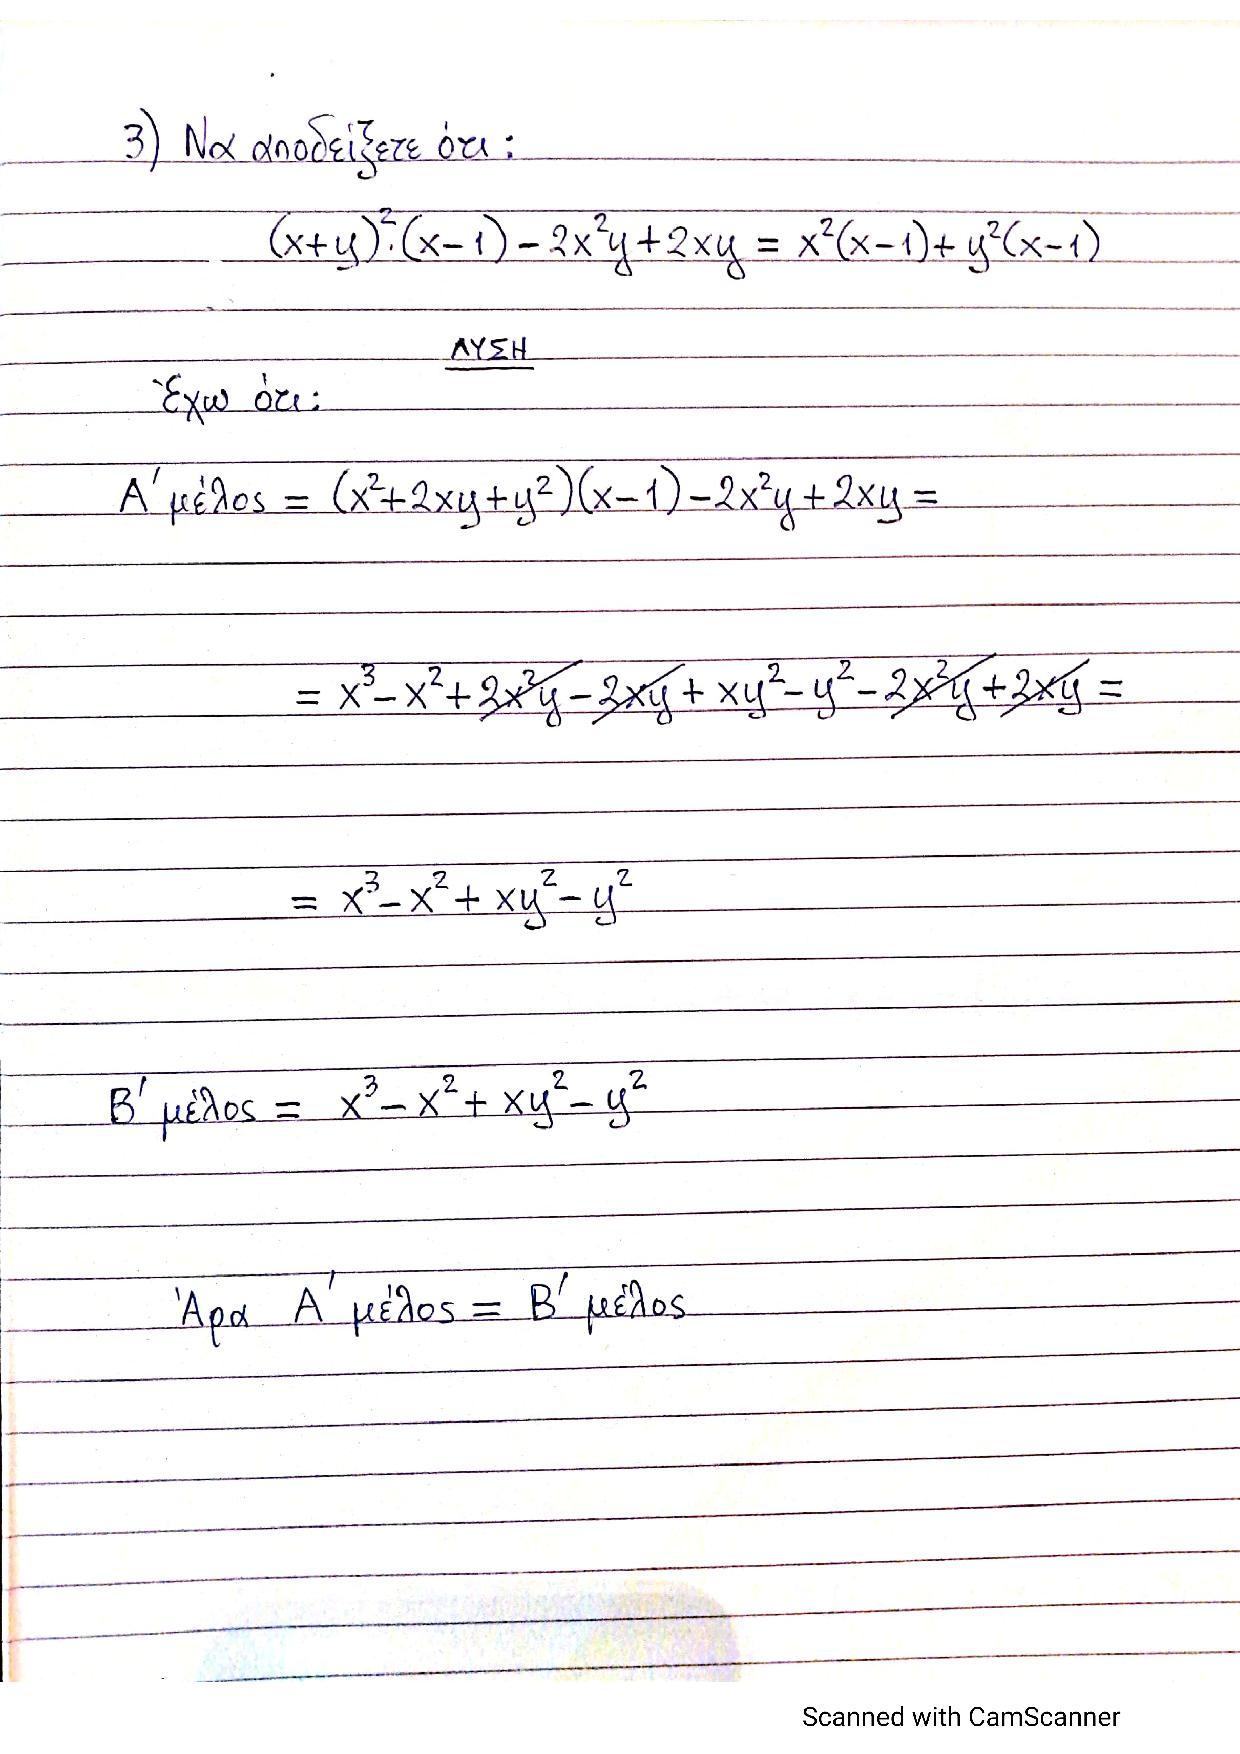 3) Να αποδείξετε ότι:
(x+y)²·(x-1)-2x²y+2xy = x²(x-1)+y²(x-1)
ΛΥΣΗ
Έχω ότι:
Α΄ μέλος = (x²+2xy+y²)(x-1)-2x²y+2xy =
= x³-x²+2x²y-2xy+xy²-y²-2x²y+2xy =
= x³-x²+xy²-y²
Β΄ μέλος = x³-x²+xy²-y²
Άρα Α΄ μέλος = Β΄ μέλος
Scanned with CamScanner